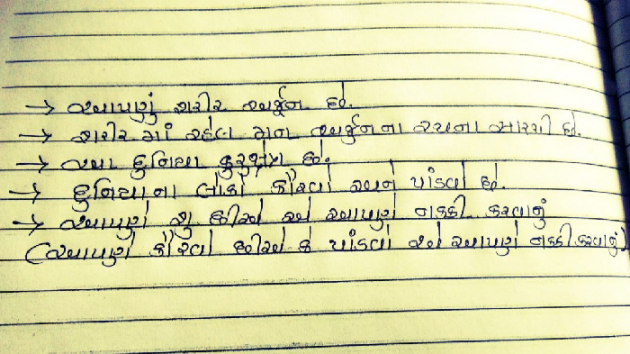 → આપણું શરીર અર્જુન છે.
→ શરીર માં રહેલ મન અર્જુનના રથના સારથી છે.
→ આ દુનિયા કુરુક્ષેત્ર છે.
→ દુનિયાના લોકો કૌરવો અને પાંડવો છે.
→ આપણે શુ છીએ એ આપણે નક્કી કરવાનું
(આપણે કૌરવો છીએ કે પાંડવો એ આપણે નક્કી કરવાનું)